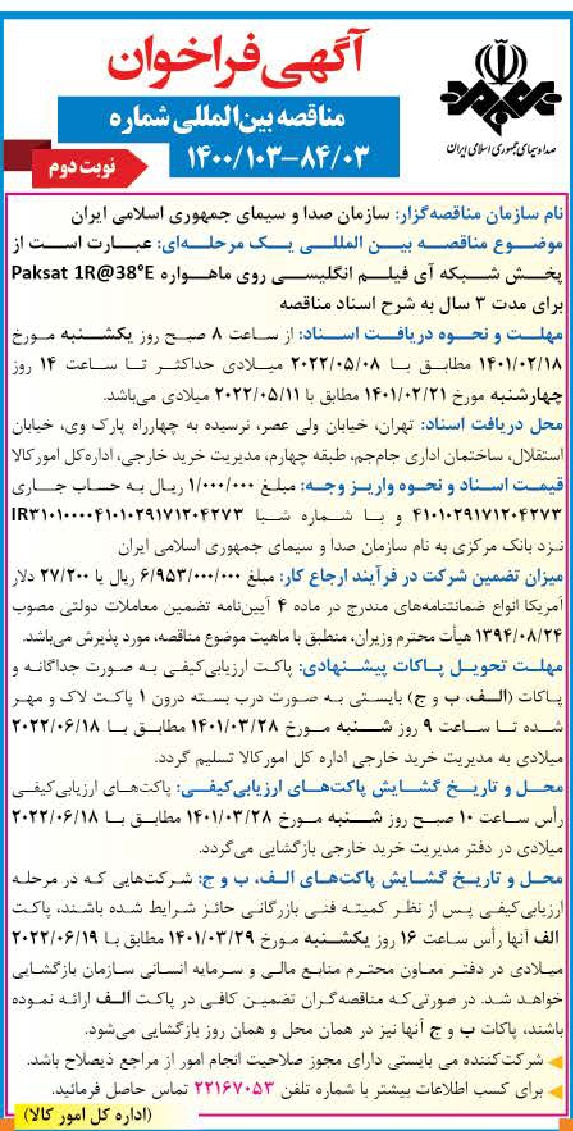 آگهی فراخوان
صدا و سیمای جمهوری اسلامی ایران
مناقصه بین‌المللی شماره
۱۴۰۰/۱۰۳-۸۴/۰۳
نوبت دوم
نام سازمان مناقصه‌گزار: سازمان صدا و سیمای جمهوری اسلامی ایران
موضوع مناقصه بین المللی یک مرحله‌ای: عبارت است از
پخش شبکه آی فیلم انگلیسی روی ماهواره Paksat 1R@38°E
برای مدت ۳ سال به شرح اسناد مناقصه
مهلت و نحوه دریافت اسناد: از ساعت ۸ صبح روز یکشنبه مورخ
۱۴۰۱/۰۲/۱۸ مطابق با ۲۰۲۲/۰۵/۰۸ میلادی حداکثر تا ساعت ۱۴ روز
چهارشنبه مورخ ۱۴۰۱/۰۲/۲۱ مطابق با ۲۰۲۲/۰۵/۱۱ میلادی می‌باشد.
محل دریافت اسناد: تهران، خیابان ولی عصر، نرسیده به چهارراه پارک وی، خیابان
استقلال، ساختمان اداری جام‌جم، طبقه چهارم، مدیریت خرید خارجی، اداره‌کل امورکالا
قیمت اسناد و نحوه واریز وجه: مبلغ ۱/۰۰۰/۰۰۰ ریال به حساب جاری
۴۱۰۱۰۲۹۱۷۱۲۰۴۲۷۳ و با شماره شبا IR۳۱۰۱۰۰۰۰۴۱۰۱۰۲۹۱۷۱۲۰۴۲۷۳
نزد بانک مرکزی به نام سازمان صدا و سیمای جمهوری اسلامی ایران
میزان تضمین شرکت در فرآیند ارجاع کار: مبلغ ۶/۹۵۳/۰۰۰/۰۰۰ ریال یا ۲۷/۲۰۰ دلار
آمریکا انواع ضمانتنامه‌های مندرج در ماده ۴ آیین‌نامه تضمین معاملات دولتی مصوب
۱۳۹۴/۰۸/۲۴ هیأت محترم وزیران، منطبق با ماهیت موضوع مناقصه، مورد پذیرش می‌باشد.
مهلت تحویل پاکات پیشنهادی: پاکت ارزیابی‌کیفی به صورت جداگانه و
پاکات (الف، ب و ج) بایستی به صورت درب بسته درون ۱ پاکت لاک و مهر
شده تا ساعت ۹ روز شنبه مورخ ۱۴۰۱/۰۳/۲۸ مطابق با ۲۰۲۲/۰۶/۱۸
میلادی به مدیریت خرید خارجی اداره کل امورکالا تسلیم گردد.
محل و تاریخ گشایش پاکت‌های ارزیابی‌کیفی: پاکت‌های ارزیابی‌کیفی
رأس ساعت ۱۰ صبح روز شنبه مورخ ۱۴۰۱/۰۳/۲۸ مطابق با ۲۰۲۲/۰۶/۱۸
میلادی در دفتر مدیریت خرید خارجی بازگشایی می‌گردد.
محل و تاریخ گشایش پاکت‌های الف، ب و ج: شرکت‌هایی که در مرحله
ارزیابی‌کیفی پس از نظر کمیته فنی بازرگانی حائز شرایط شده باشند، پاکت
الف آنها رأس ساعت ۱۶ روز یکشنبه مورخ ۱۴۰۱/۰۳/۲۹ مطابق با ۲۰۲۲/۰۶/۱۹
میلادی در دفتر معاون محترم منابع مالی و سرمایه انسانی سازمان بازگشایی
خواهد شد. در صورتی‌که مناقصه‌گران تضمین کافی در پاکت الف ارائه نموده
باشند، پاکات ب و ج آنها نیز در همان محل و همان روز بازگشایی می‌شود.
شرکت‌کننده می بایستی دارای مجوز صلاحیت انجام امور از مراجع ذیصلاح باشد.
برای کسب اطلاعات بیشتر با شماره تلفن ۲۲۱۶۷۰۵۳ تماس حاصل فرمائید.
(اداره کل امور کالا)